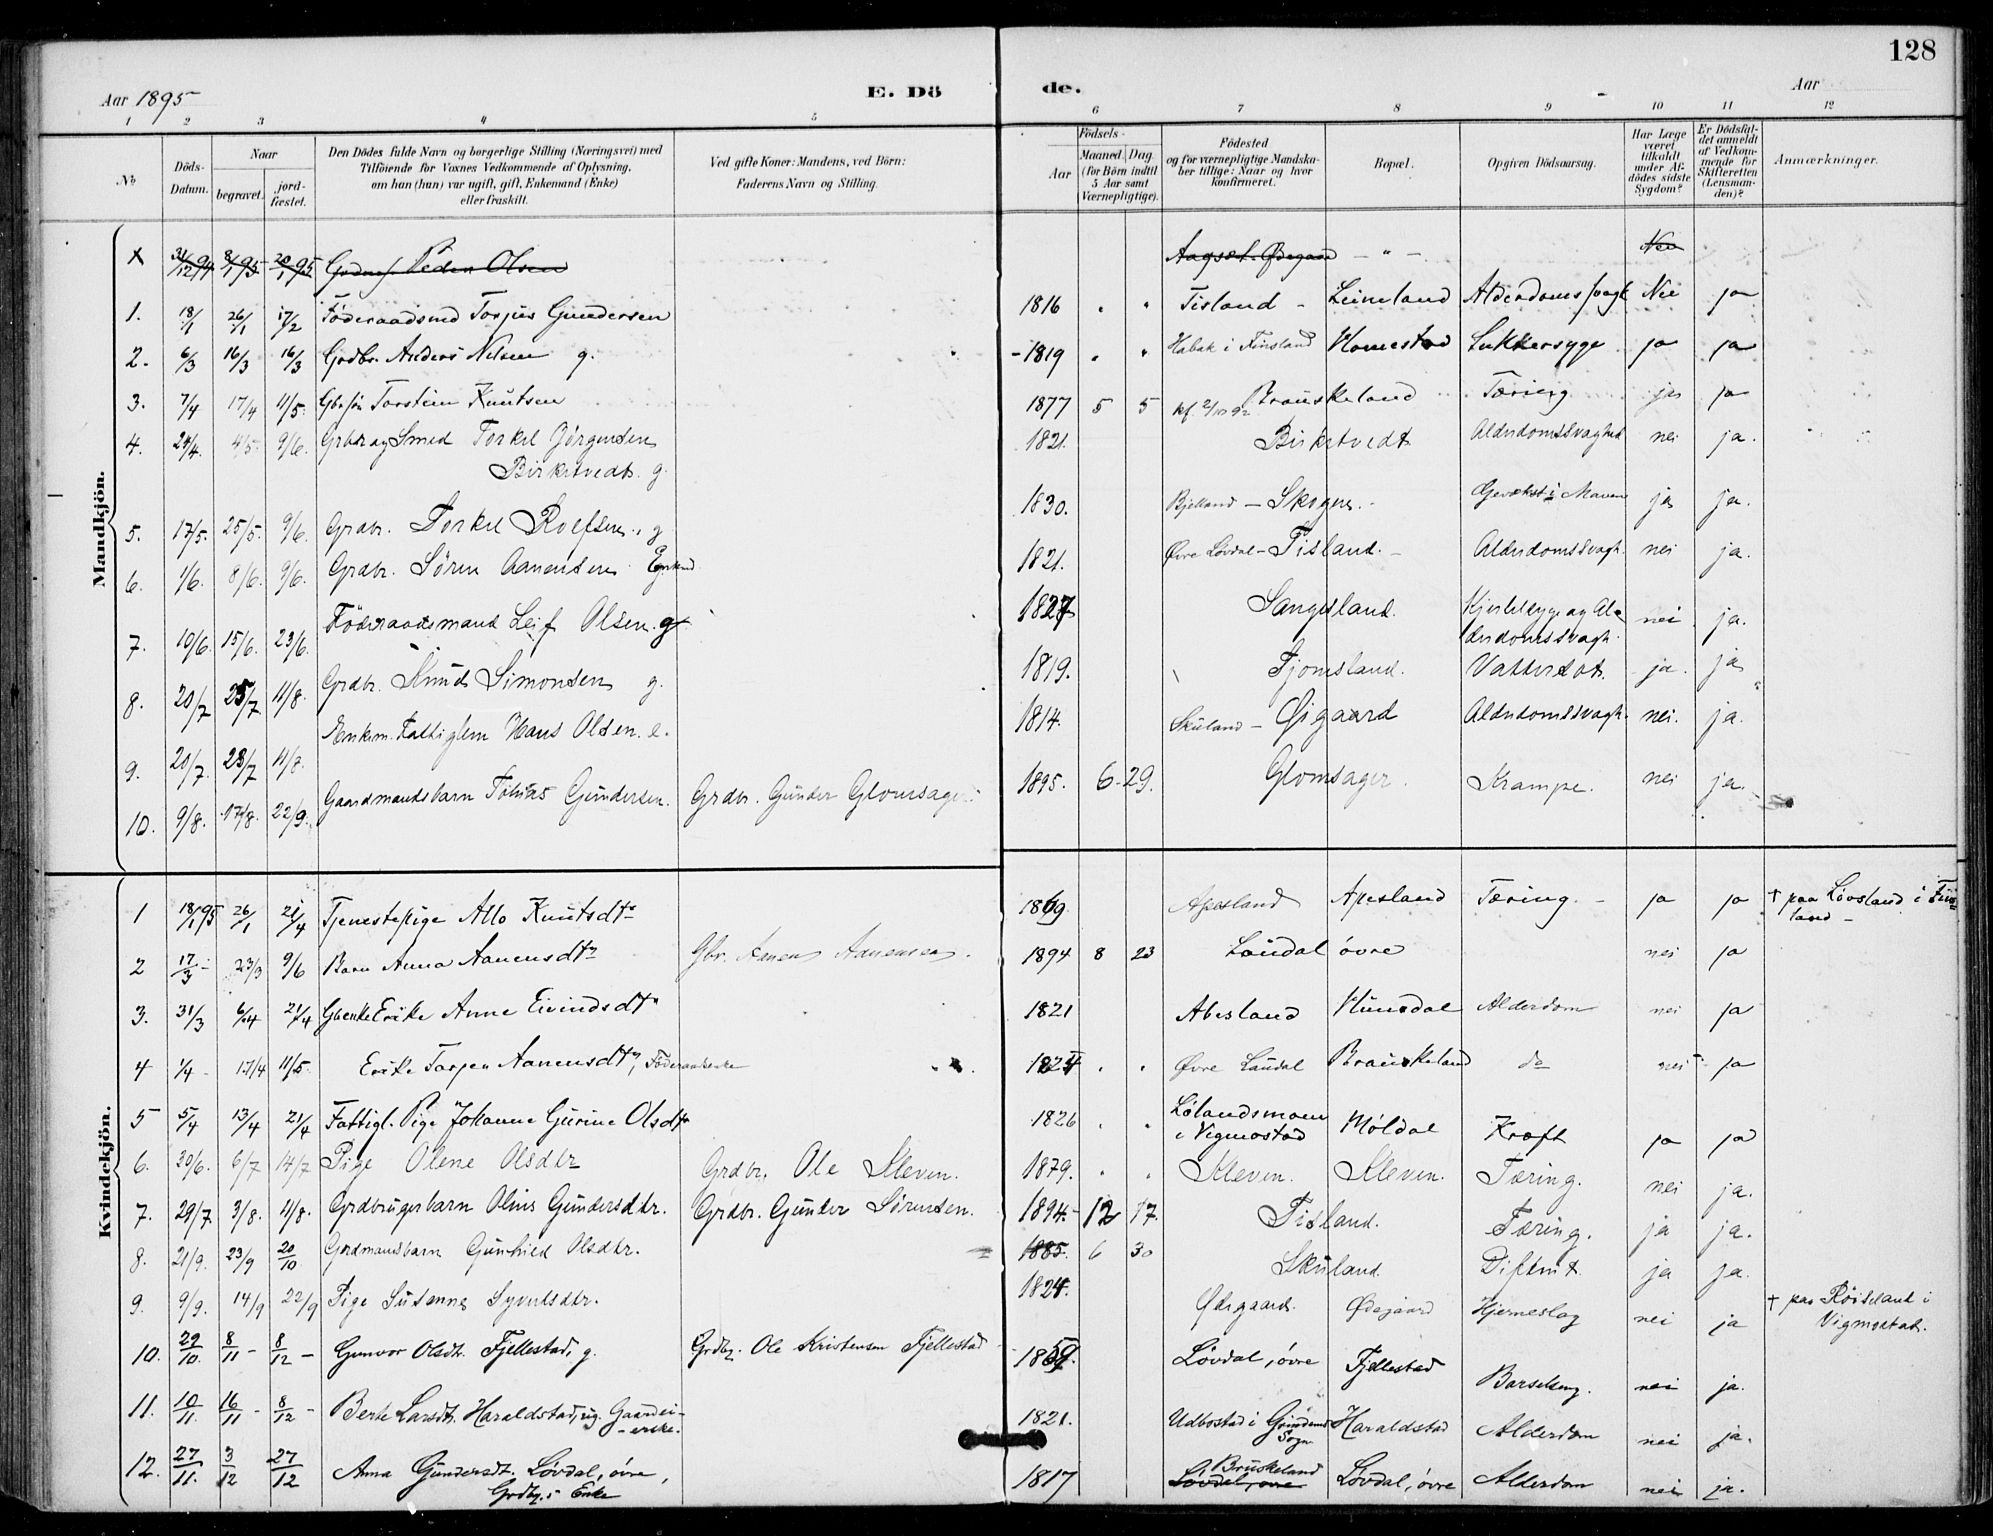 128
Aar 1895
E. Dö
de.
Aar
1 2 3 4 5 6 7 8 9 10 11 12
No
Döds-Datum.
Naar
begravet.
jord-fæstet.
Den Dödes fulde Navn og borgerlige Stilling (Næringsvei) med
Tilföiende for Voxnes Vedkommende af Oplysning,
om han (hun) var ugift, gift, Enkemand (Enke)
eller fraskilt.
Ved gifte Koner: Mandens, ved Börn:
Faderens Navn og Stilling.
Födsels-
Aar
Maaned. Dag
(for Börn indtil
5 Aar samt
Værnepligtige).
Födested
og for værnepligtige Mandska-
ber tillige: Naar og hvor
konfirmeret.
Bopæl.
Opgiven Dödsaarsag.
Har Læge
været
tilkaldt
under Af-
dödes sidste
Sygdom?
Er Dödsfal-
det anmeldt
af Vedkom-
mende for
Skifteretten
(Lensman-
den)?
Anmærkninger.
Mandkjön.
x 31/12 94 8/1 95 20/1 95 Peder Olsen Aagset. Ødegaard - " - Nei
1. 18/1 26/1 17/2 Föderaadsmd Torjus Gundersen 1816 " " Tisland - Leineland Alderdomssvagh Nei ja
2. 6/3 16/3 16/3 Grdbr. Anders Nilsen g. - 1819 " " Habak i Finsland Homestad Sukkersyge ja ja
3. 7/4 17/4 11/5. Gbrsön Torstein Knutsen 1877 5 5 Brauskeland Tæring ja ja
4. 24/4. 4/5 9/6. Grbdr og Smed Torkel Jörgensen
Birketvedt. g. 1821. Birketvedt Alderdomssvaghed nei ja.
5. 17/5. 25/5. 9/6. Grdbr. Torkel Roelfsen. g 1830. Bjelland - Skogen. - Gevækst i Maven ja ja.
6. 1/6. 8/6. 9/6. Grdbr. Sören Aanensen Enkmd 1821. Øvre Lövdal - Tisland. - Alderdomssvagh. nei ja.
7. 10/6. 15/6. 23/6. Föderaadsmand Leif Olsen. g. 1827 Sangesland. Kjertelsyge og Al-
derdomssvagh. nei ja.
8. 20/7 25/7 11/8. Grdbr. Knud Simonsen g. 1819. Fjomsland. Vattersot. ja. ja
9. 20/7. 23/7 11/8. Enkem. Fattiglem Hans Olsen. e. 1814. Skuland - Øigaard Alderdomssvagh. nei. ja.
10. 9/8. 17/8. 22/9. Gaardmandsbarn Tobias Gundersen. Grdbr. Gunder Glomsager. 1895. 6 - 29. Glomsager. Krampe. nei ja.
Kvindekjön.
1 18/1 95 26/1 21/4 Tjenestepige Allo Knutsdtr 1869. Apesland Apesland Tæring. - ja ja † paa Lövsland i Fins-
land -
2 17/3 - 23/3 9/6 Barn Anna Aanensdtr Gbr. Aanen Aanensen. 1894 8 23 Laudal övre nei ja
3. 31/3 6/4 21/4 Anne Eivindsdtr 1821 Abesland Hunsdal Alderdom nei ja
4 1/4 - 17/4 11/5. Enke Torjen Aanensdtr, Föderaadsenke 1824 " " Øvre Laudal Brauskeland do nei - ja
5 5/4 13/4 21/4 Fattigl. Pige Johanne Gurine Olsdtr 1826 " " Lölandsmoen
i Vigmostad Möldal Kræft ja ja
6. 30/6. 6/7 14/7 Pige Olene Olsdtr Grdbr. Ole Kleven. 1879. " " Kleven. Kleven. Tæring. nei ja.
7. 29/7 3/8. 11/8. Grdbrugerbarn Oline Gundersdtr. Grdbr. Gunder Sörensen. 1894. - 12 17. Tisland. Tæring. ja ja.
8. 21/9. 23/9 20/10 Grdmandsbarn Gunhild Olsdtr. 1885. 6 30 Skuland. Difterit. ja ja.
9. 9/9. 14/9 22/9 Pige Susanne Syvertsdtr. 1824. Ødegaard. Ødegaard Hjerneslag nei ja † paa Röiseland i
Vigmostad.
10. 29/10. 8/11 - 8/12 - Gunvor Olsdtr. Fjellestad, g. Grdbr. Ole Kristensen Fjellestad - 1859. Lövdal, övre Fjellestad Barselseng. nei ja.
11. 10/11. 16/11 - 8/12 - Berte Larsdtr. Haraldstad, ug. Gaardei-
erske. 1821. Udbostad i Grindems
Sogn Haraldstad Alderdom nei ja.
12. 27/11. 3/12 27/12 Anna Gundersdtr. Lövdal, övre,
Grdbr.s Enke 1817 Bruskeland
Lövdal, övre Lövdal, övre Alderdom nei ja.